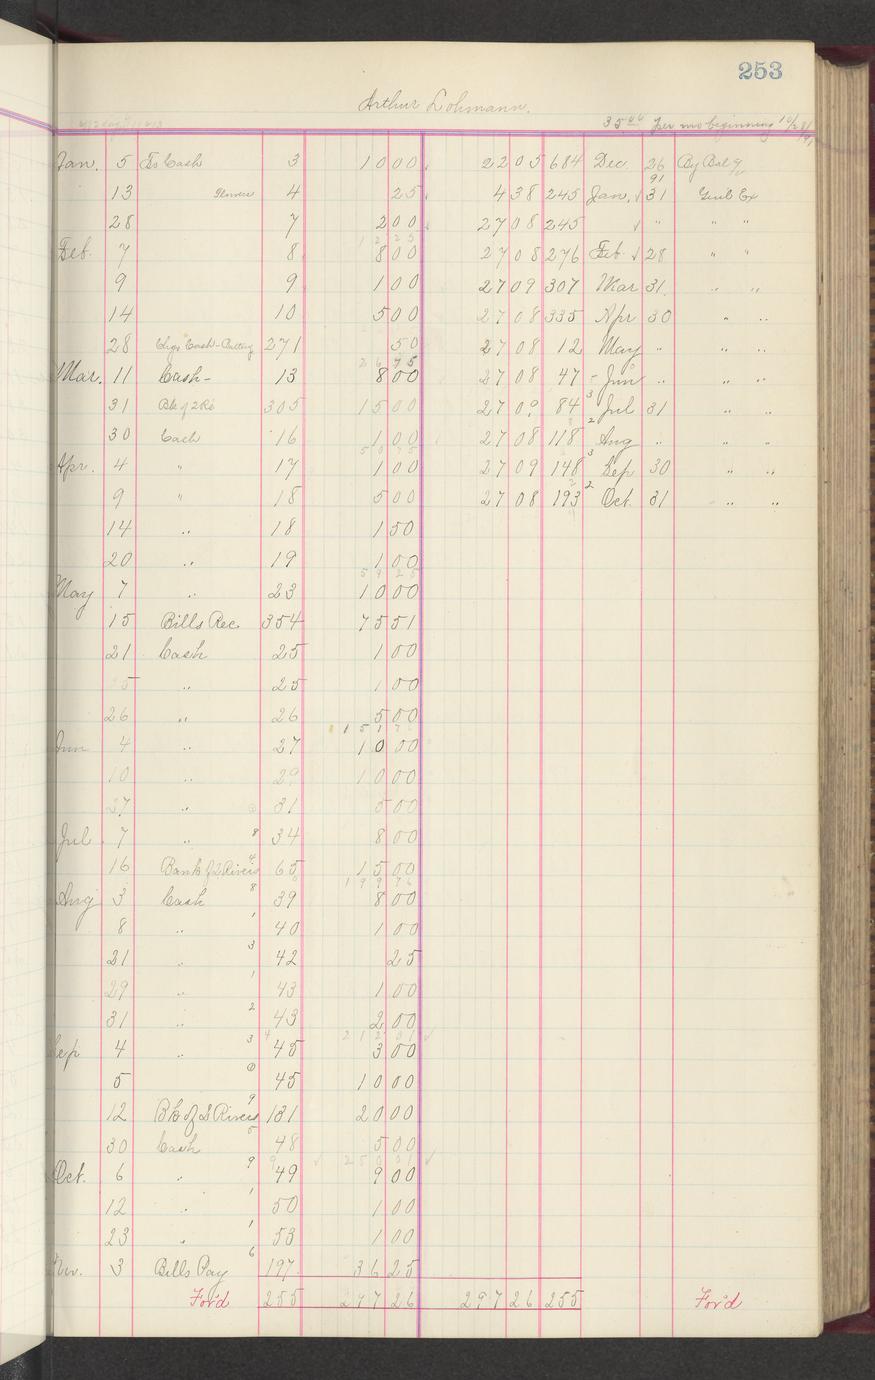 253
Arthur Lohmann.
35.00 per mo beginning 10/28/91
Jan. 5 To Cash 3 10 00 22 05 684 Dec. 26 By Bal %
91
13 4 25 4 38 245 Jan. 31 Genl Ex
28 7 2 00 27 08 245 " "
12 25
Feb. 7 8 8 00 27 08 276 Feb 28 " "
9 9 1 00 27 09 307 Mar 31. " "
14 10 5 00 27 08 335 Apr 30 " "
28 Cash-Battery 271 50 27 08 12 May " " "
26 75
Mar. 11 Cash- 13 8 00 27 08 47 Jun " " "
31 Bk of 2 Ri 305 15 00 27 09 84 3 Jul 31 " "
30 Cash 16 1 00 27 08 118 2 Aug " " "
50 75
Apr. 4 " 17 1 00 27 09 148 3 Sep 30 " "
9 " 18 5 00 27 08 193 2 Oct. 31 " "
14 " 18 1 50
20 " 19 1 00
59 25
May 7 " 23 10 00
15 Bills Rec. 354 75 51
21 Cash 25 1 00
25 " 25 1 00
26 " 26 5 00
151 76
Jun 4 " 27 10 00
10 " 29 10 00
27 " 31 5 00
Jul. 7 " 8 34 8 00
16 Bank of 2 Rivers 4 65 15 00
199 76
Aug 3 Cash 8 39 8 00
8 " 1 40 1 00
21 " 3 42 25
29 " 1 43 1 00
31 " 2 43 2 00
212 01
Sep 4 " 3 45 3 00
5 " 45 10 00
12 Bk of 2 Rivers 9 131 20 00
30 Cash 5 48 5 00
250 01
Oct. 6 " 9 49 9 00
12 " 1 50 1 00
23 " 1 53 1 00
Nov. 3 Bills Pay 6 197 36 25
For'd 255 297 26 297 26 255 For'd